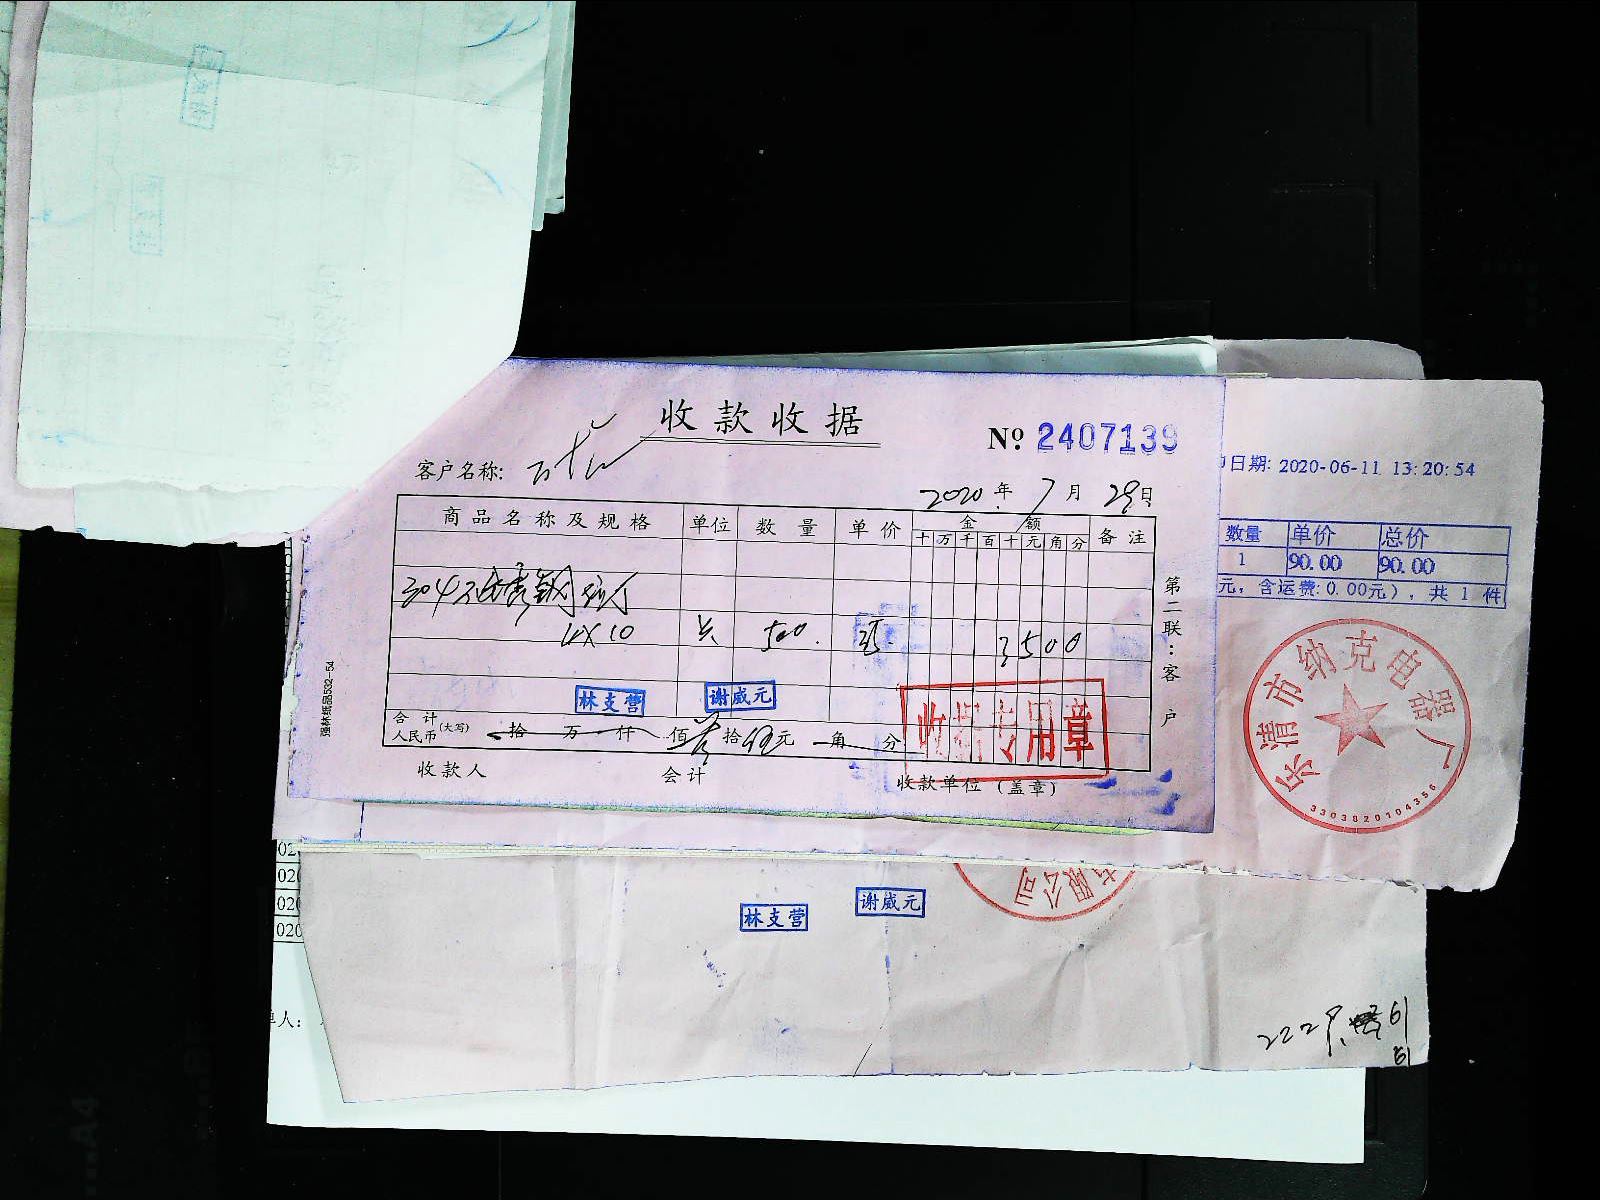 收款收据
№ 2407139
客户名称:
2020年7月29日
商品名称及规格 单位 数量 单价 金额 备注
十万千百十元角分
304不锈钢
4×10 500. 3500
林支营 谢威元
合计
人民币(大写) 拾万仟佰叁拾伍元角分
收据专用章
收款人 会计 收款单位(盖章)
第二联:客户
强林纸品532-54
日期: 2020-06-11 13:20:54
数量 单价 总价
1 90.00 90.00
元, 含运费: 0.00元), 共 1 件
乐清市纳克电器厂
3303820104356
02
020
020
020
有限公司
林支营 谢威元
单人: